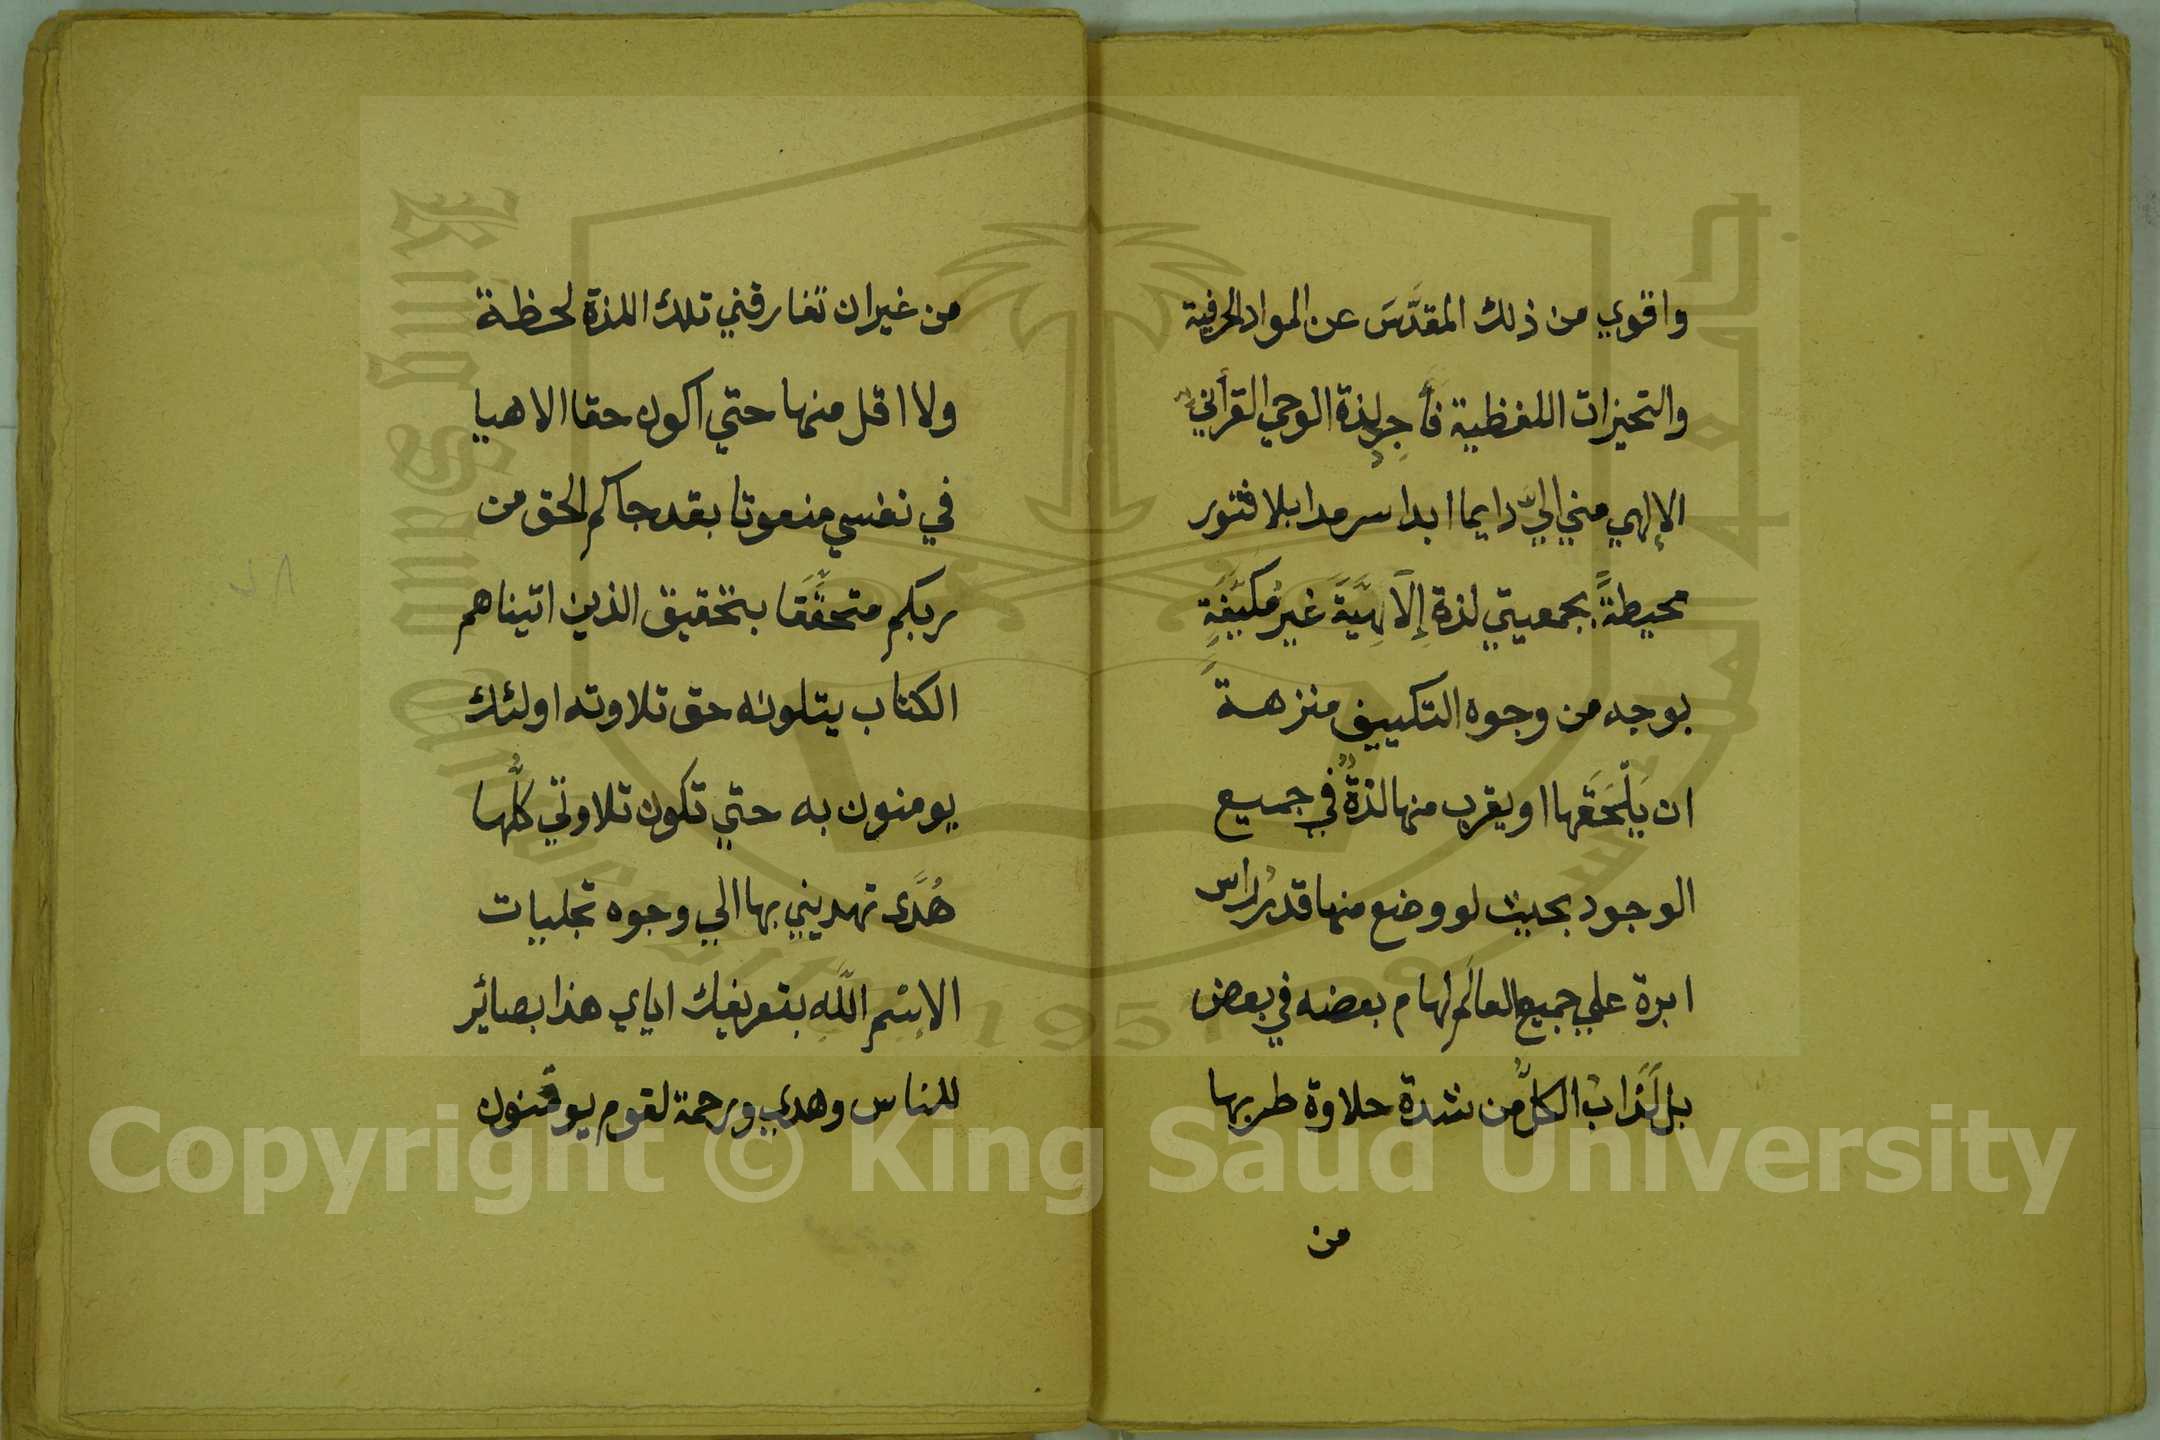 واقوي من ذلك المقدَّسَ عن المواد الحرفية
والتحيزات اللفظية فأجرِ لذة الوحي القرآني
الإلهي مني اليَّ دايما ابدا سرمدا بلا فتور
محيطةً بجمعيتي لذة إلَاهِيَّةَ غيرَ مُكيَّفَةٍ
بوجه من وجوه التكييف منزهةً
ان يَلْحَقها او يقرب منها لذةٌ في جميع
الوجود بحيث لو وضع منها قدرُ راس
ابرة علي جميع العالَم لهام بعضه في بعض
بل لَذَابَ الكلُّ من شدة حلاوة طربها
من
من غير ان تفارقني تلك اللذة لحظة
ولا اقل منها حتي اكون حقا الاهيا
في نفسي منعوتا بقد جاكم الحق من
ربكم متحقِّقَا بتحقيق الذين اتيناهم
الكتاب يتلونه حق تلاوته اولئك
يومنون به حتي تكون تلاوتي كلُّها
هُدًى تهديني بها الي وجوه تجليات
الاسْم اللَّه بتعريفك اياي هذا بصائر
للناس وهدي ورحمة لقوم يوقنون
٢٨
Copyright © King Saud University
King Saud University
جامعة الملك سعود
1957